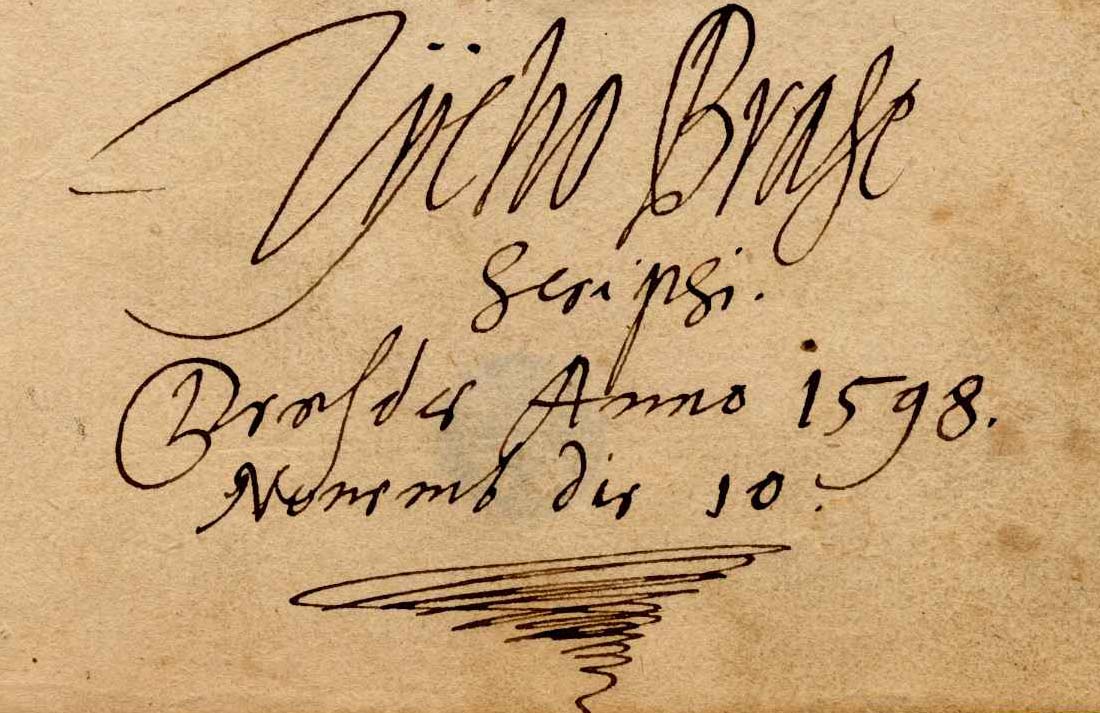 Tÿcho Brahe
scripsi.
Dresdæ Anno 1598.
Novemb die 10.